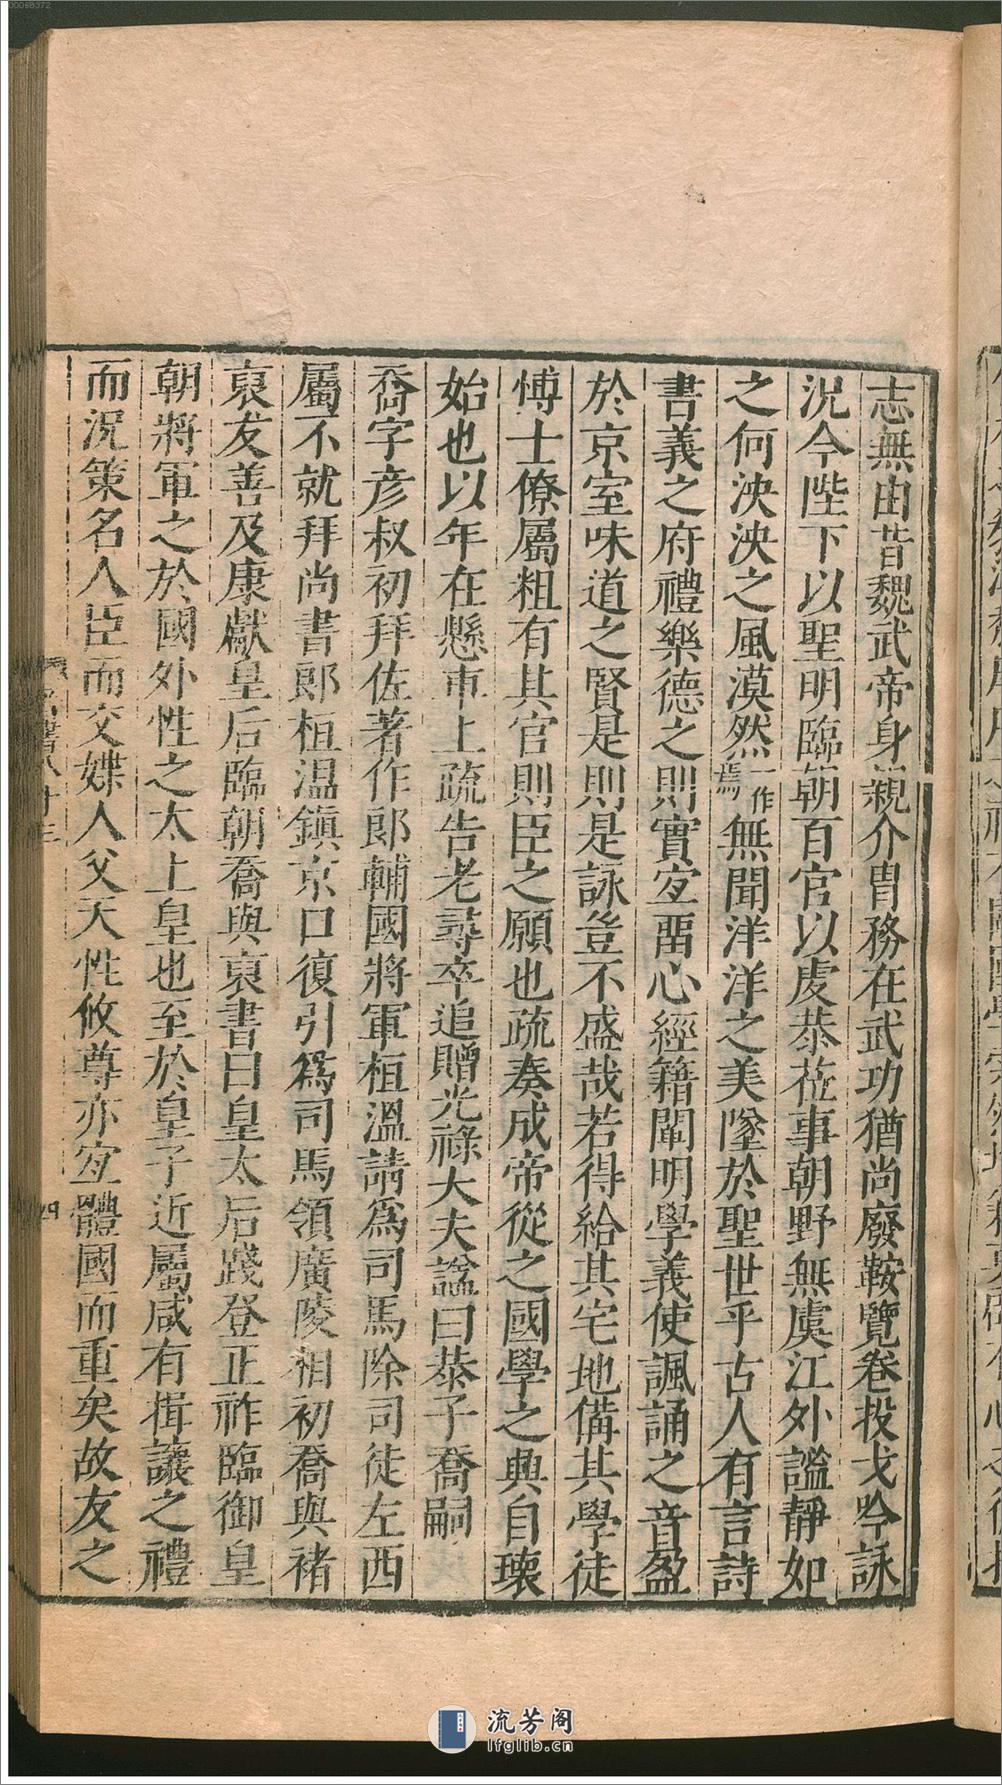 志無由昔魏武帝身親介胄務在武功猶尚廢鞍覽卷投戈吟詠
况今陛下以聖明臨朝百官以虔恭莅事朝野無虞江外謐靜如
之何泱泱之風漠然一作焉無聞洋洋之美墜於聖世乎古人有言詩
書義之府禮樂德之則實宐畱心經籍闡明學義使諷誦之音盈
於京室味道之賢是則是詠豈不盛哉若得給其宅地備其學徒
博士僚屬粗有其官則臣之願也疏奏成帝從之國學之興自瓌
始也以年在懸車上疏告老尋卒追贈光祿大夫諡曰恭子喬嗣
喬字彦叔初拜佐著作郎輔國將軍桓溫請爲司馬除司徒左西
屬不就拜尚書郎桓温鎮京口復引爲司馬領廣陵相初喬與褚
裒友善及康獻皇后臨朝喬與裒書曰皇太后踐登正祚臨御皇
朝將軍之於國外性之太上皇也至於皇子近屬咸有揖讓之禮
而況策名人臣而交媟人父天性攸尊亦宐體國而重矣故友之
八十三
流芳阁
lfglib.cn